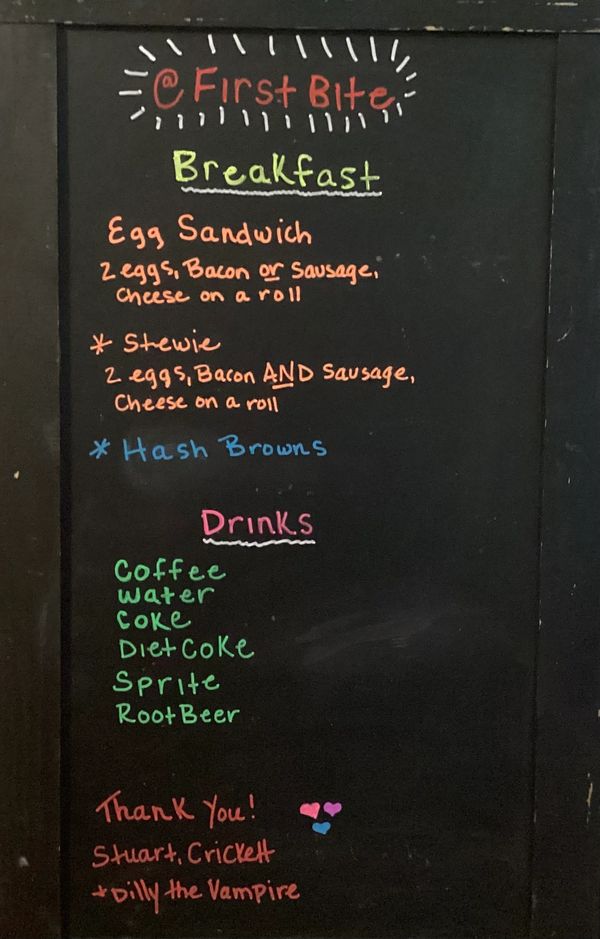 @ First Bite
Breakfast
Egg Sandwich
2 eggs, Bacon or Sausage,
Cheese on a roll
* Stewie
2 eggs, Bacon AND Sausage,
Cheese on a roll
* Hash Browns
Drinks
Coffee
Water
Coke
Diet Coke
Sprite
Root Beer
Thank You!
Stuart, Crickett
+ Dilly the Vampire